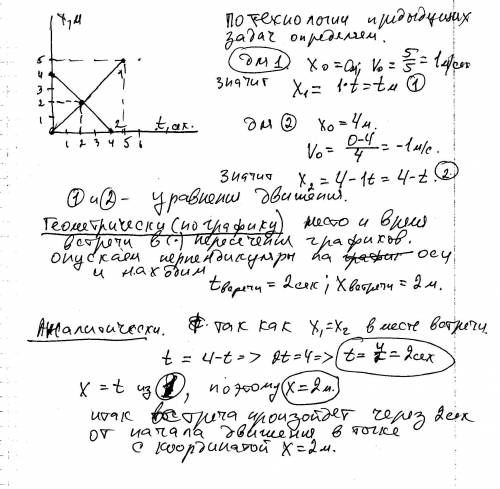 x, м
5
4
3
2
1
1 2 3 4 5 6
1
2
t, сек.
По технологии предыдущих
задач определяем.
для 1. x₀ = 0м; v₀ = 5/5 = 1 м/сек
значит x₁ = 1·t = t м ①
для ② x₀ = 4 м.
v₀ = (0-4)/4 = -1 м/с.
значит x₂ = 4 - 1t = 4 - t. ②
① и ② - уравнения движения.
Геометрически (по графику) место и время
встречи в (·) пересечения графиков.
опускаем перпендикуляры на оси
и находим
t встречи = 2 сек; x встречи = 2 м.
Аналитически. так как x₁ = x₂ в месте встречи
t = 4 - t => 2t = 4 => t = 4/2 = 2 сек
x = t из 1, поэтому x = 2 м.
итак встреча произойдет через 2 сек
от начала движения в точке
с координатой x = 2 м.